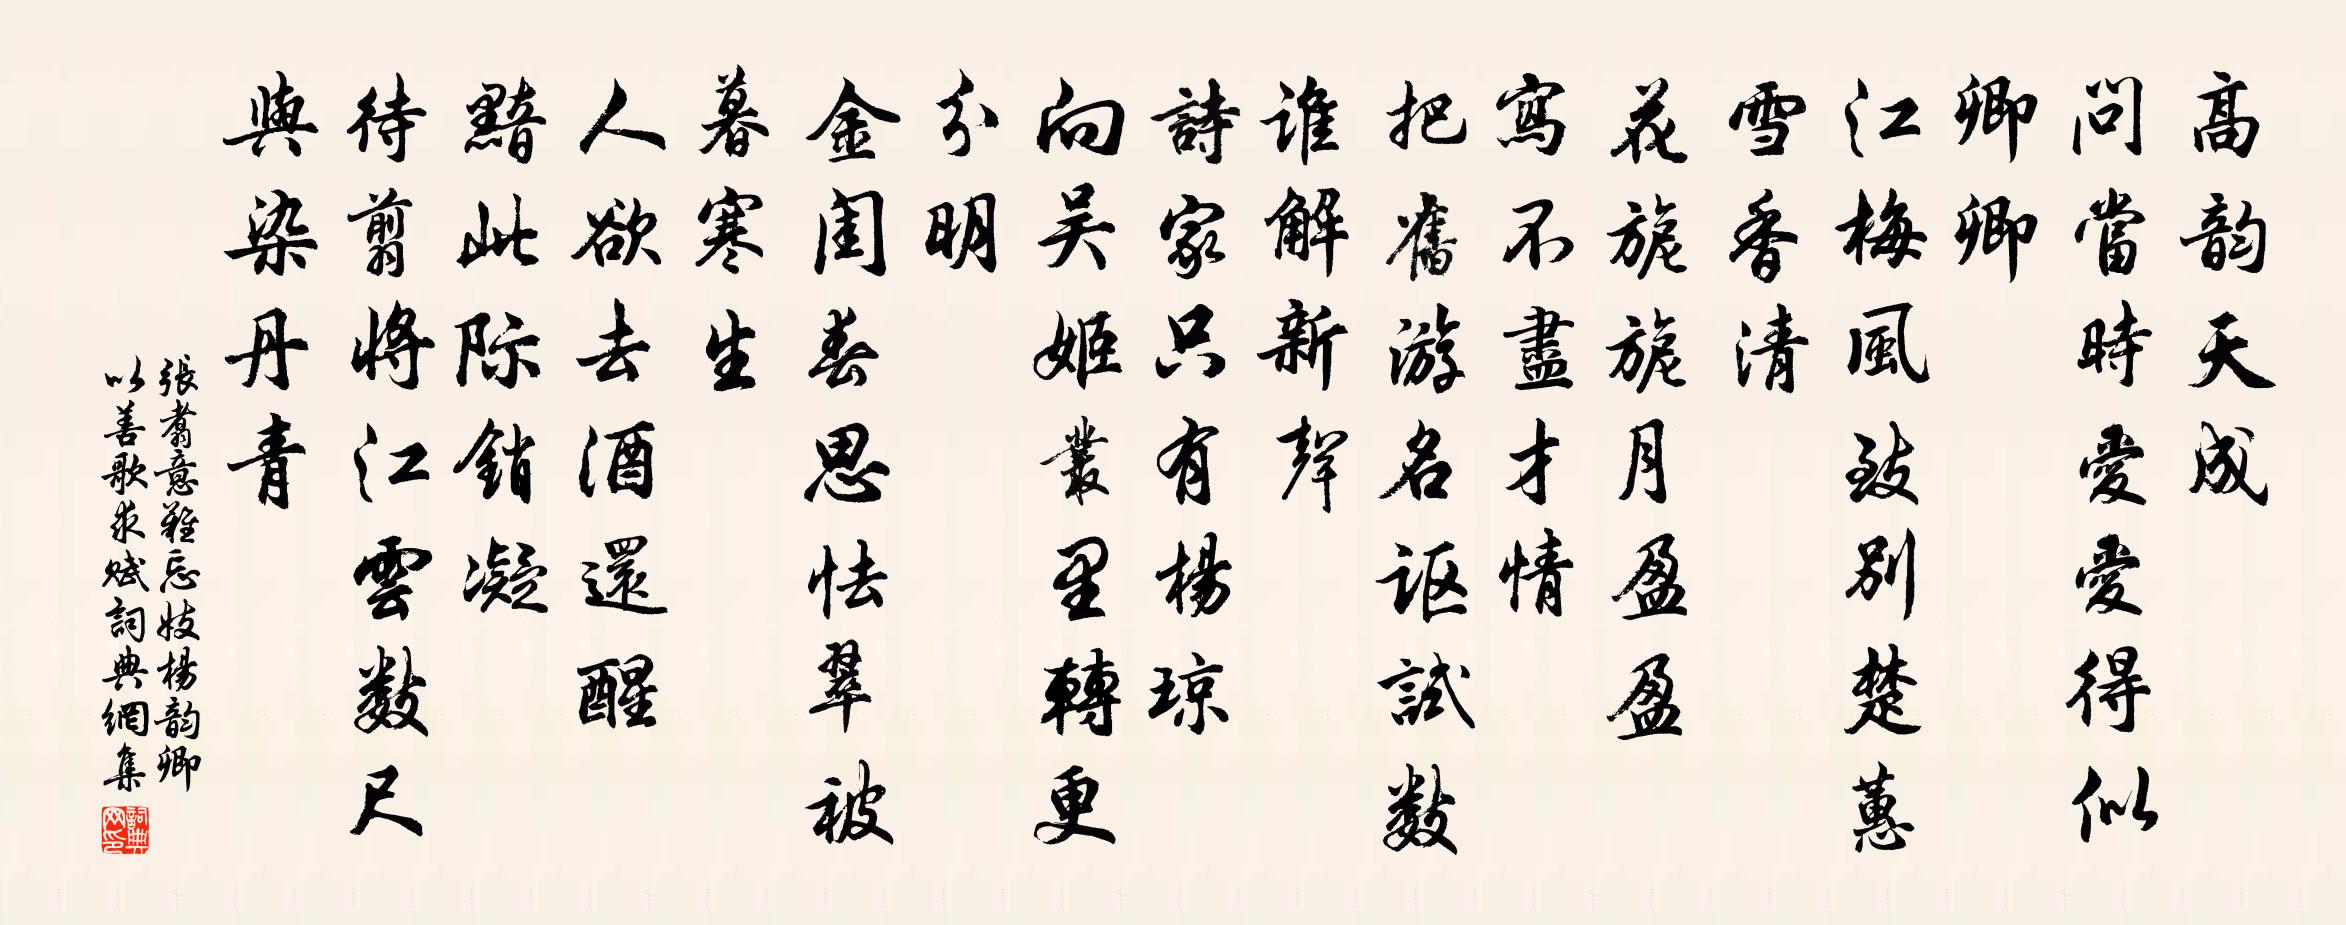 高韵天成
問當時愛愛得似
卿卿
江梅風致別楚蕙
雪香清
花旎旎月盈盈
寫不盡才情
把舊游名讴試数
谁解新聲
詩家只有楊琼
向吴姬叢里轉更
分明
金閨春思怯翠被
暮寒生
人欲去酒還醒
黯此际銷凝
待翦將江雲数尺
與染丹青
張翥意難忘妓楊韵卿
以善歌求赋詞典網集
詞典網印